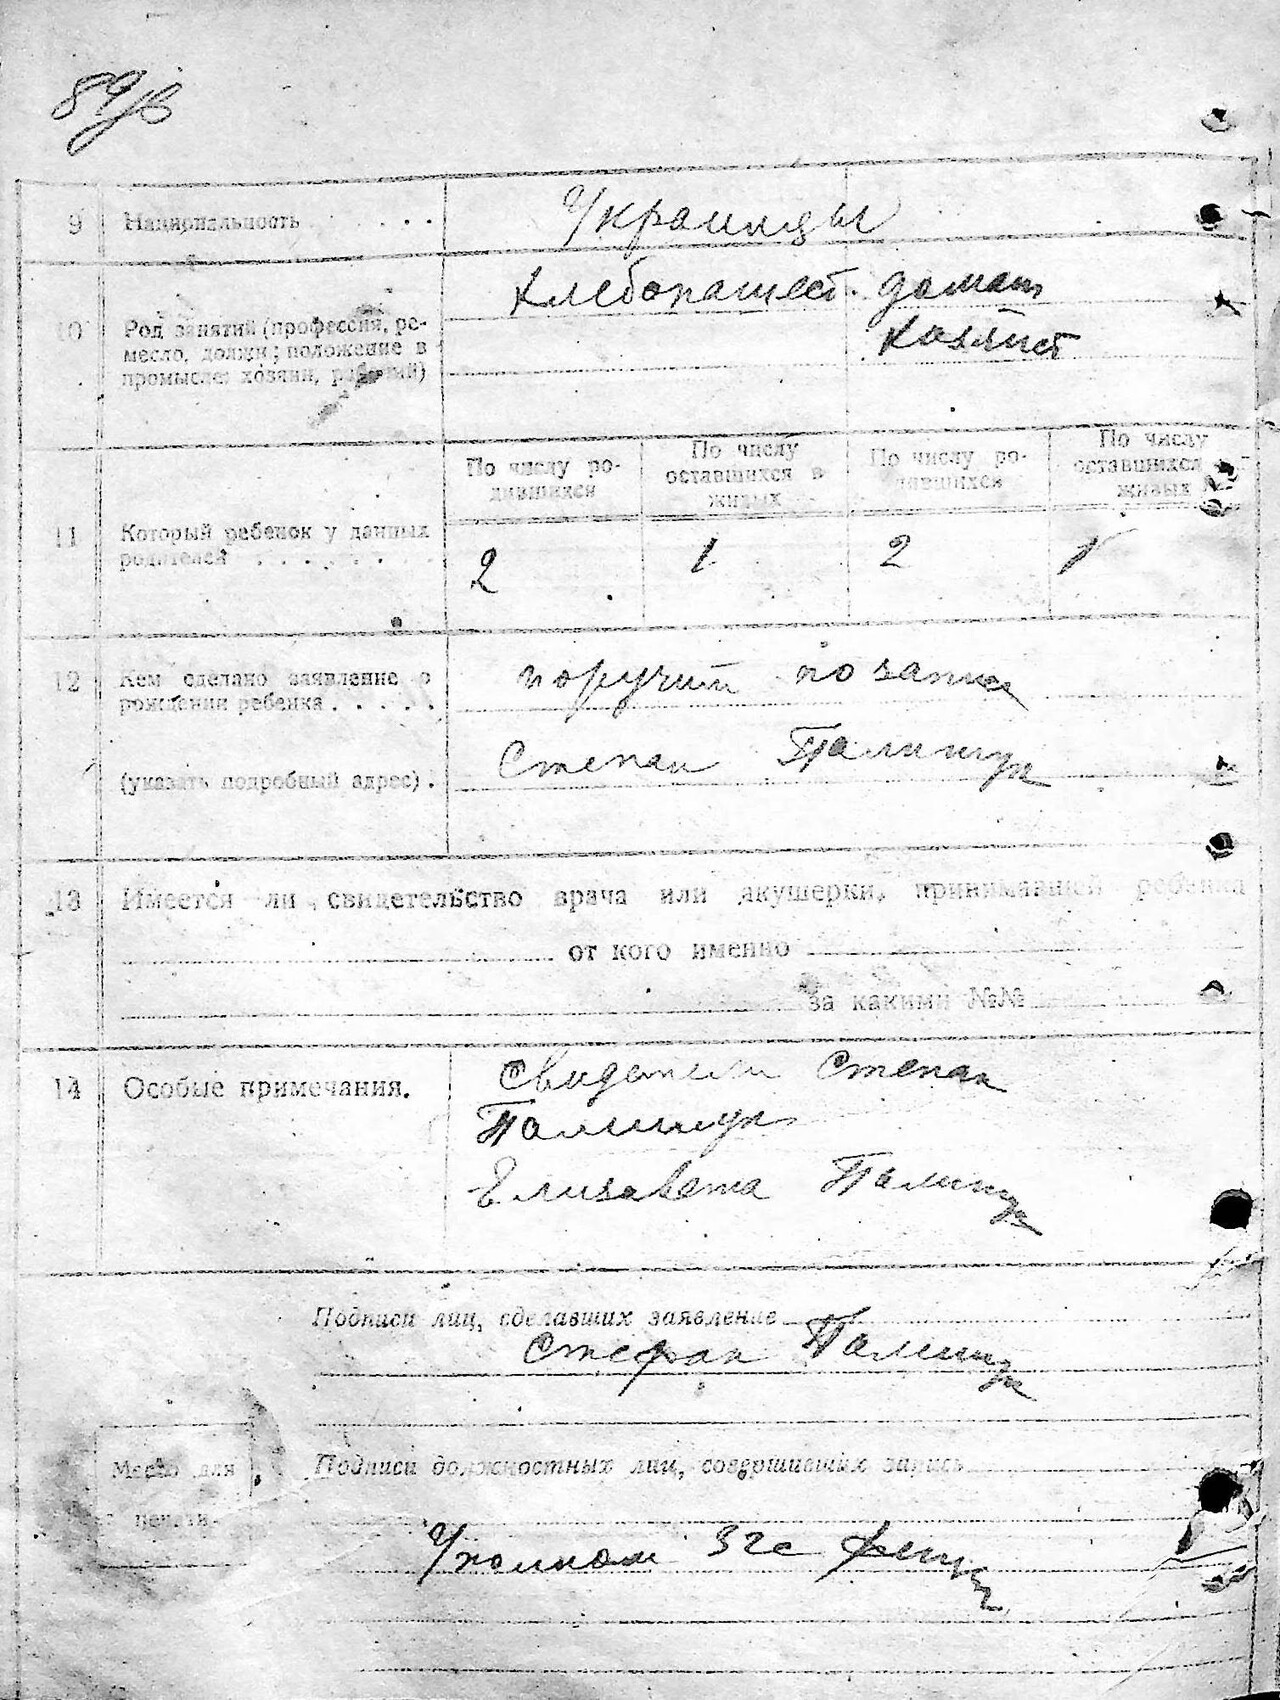 89об
9 Национальность . . . Украинцы
10 Род занятий (профессия, ре-
месло, должн; положение в
промысле: хозяин, рабочий)
Хлебопашест. домаш
хозяйст
По числу ро-
дившихся
По числу
оставшихся в
живых
По числу ро-
дившихся
По числу
оставшихся
живых
11 Который ребенок у данных
родителей . . . . . . .
2 1 2 1
12 Кем сделано заявление о
рождении ребенка . . . . .
(указать подробный адрес) .
поручит по запис
Степан Палишук
13 Имеется ли свидетельство врача или акушерки, принимавшей ребенка
от кого именно
за какими №№
14 Особые примечания.
Свидетели Степан
Палишук
Елизавета Палишук
Подписи лиц, сделавших заявление
Стефан Палишук
Место для
печати
Подписи должностных лиц, совершивших запись